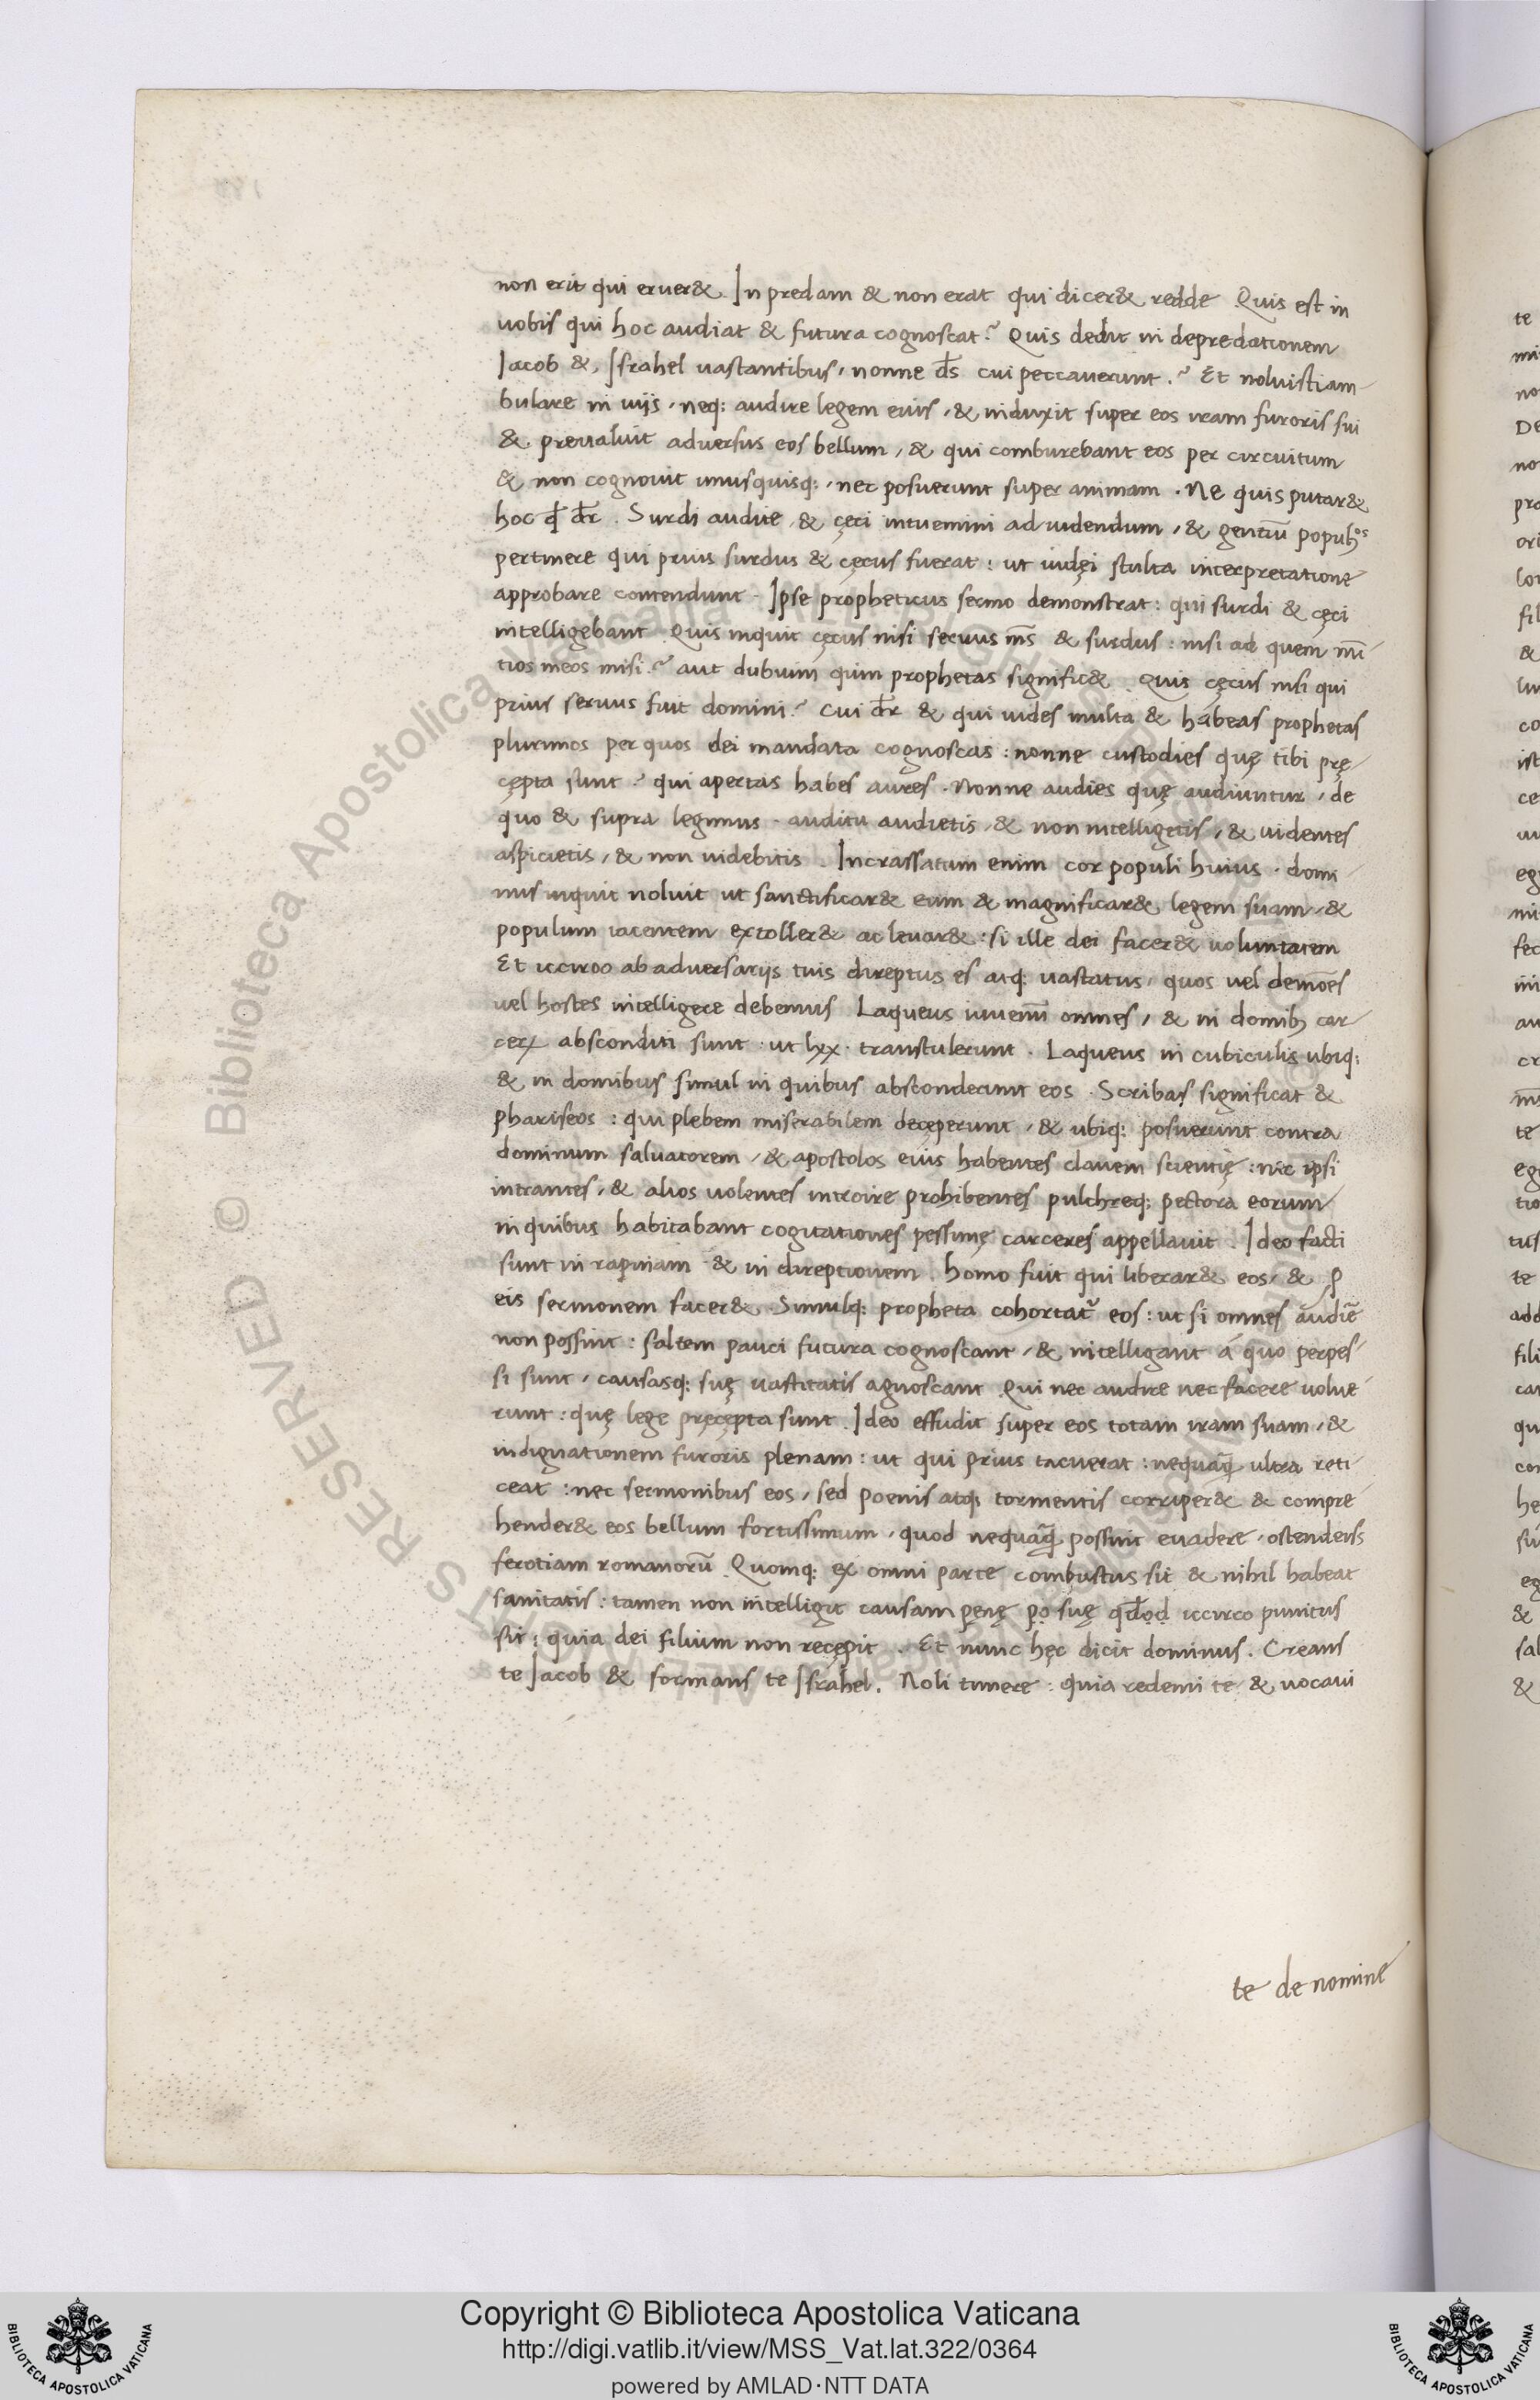 non erit qui eruer& In predam & non erat qui dicer& redde Quis est in
uobis qui hoc audiat & futura cognoscat? Quis dedit in depredationem
Iacob &, Israhel uastantibus, nonne d̄s cui peccauerunt.? Et noluistiam-
bulare in uijs, neq: audire legem eius, & induxit super eos iram furoris sui
& preualuit aduersus eos bellum, & qui comburebant eos per circuitum
& non cognouit unusquisq:, nec posuerunt super animam. Ne quis putar&
hoc qđ dr̄. Surdi audite, & cęci intuemini ad uidendum, & gentiū populos
pertinere qui prius surdus & cęcus fuerat: ut iudęi stulta interpretatione
approbare contendunt. Ipse propheticus sermo demonstrat: qui surdi & cęci
intelligebant. Quis inquit cęcus nisi seruus m̄s & surdus: nisi ad quem nū
tios meos misi? aut dubium quin prophetas signific&. Quis cęcus nisi qui
prius seruus fuit domini? Cui dr̄ & qui uides multa & habeas prophetas
plurimos per quos dei mandata cognoscas: nonne custodies quę tibi prę-
cępta sunt? qui apertas habes aures. Nonne audies quę audiuntur, de
quo & supra legimus. auditu audietis, & non intelligetis, & uidentes
aspicietis, & non uidebitis. Incrassatum enim cor populi huius. domi-
nus inquit noluit ut sanctificar& eum & magnificar& legem suam, &
populum iacentem extoller& ac leuar&: si ille dei facer& uoluntatem
Et iccirco ab aduersarijs tuis direptus es atq: uastatus, quos uel demōes
uel hostes intelligere debemus Laqueus iuuenū omnes, & in domib; car-
cerꝝ absconditi sunt. ut lxx. transtulerunt. Laqueus in cubiculis ubiq:
& in domibus simul in quibus absconderunt eos. Scribas significat &
phariseos: qui plebem miserabilem decęperunt, & ubiq: posuerunt contra
dominum saluatorem, & apostolos eius habentes clauem scientię: nec ipsi
intrantes, & alios uolentes introire prohibentes pulchreq: pectora eorum
in quibus habitabant cogitationes pessimę carceres appellauit. Ideo facti
sunt in rapinam & in direptionem. homo fuit qui liberar& eos, & ꝓ
eis sermonem facer&. Simulq: propheta cohortatᷣ eos: ut si omnes audiē
non possint: saltem pauci futura cognoscant, & intelligant á quo perpes-
si sunt, causasq: suę uastitatis agnoscant Qui nec audire nec facere uolue
runt: quę lege pręcępta sunt. Ideo effudit super eos totam iram suam, &
indignationem furoris plenam: ut qui prius tacuerat: nequaq̄ ultra reti-
ceat: nec sermonibus eos, sed poenis atq: tormentis corriper& & compre-
hender& eos bellum fortissimum, quod nequaq̄ possint euadere, ostendens
ferotiam romanorū Quomq: ex omni parte combustus sit & nihil habeat
sanitatis: tamen non intelligit causam pęnę suę iccirco punitus
sit: quia dei filium non recępit. Et nunc hęc dicit dominus. Creans
te Iacob & formans te Israhel. Noli timere: quia redemi te & uocaui
te de nomine
Copyright © Biblioteca Apostolica Vaticana
http://digi.vatlib.it/view/MSS_Vat.lat.322/0364
powered by AMLAD·NTT DATA